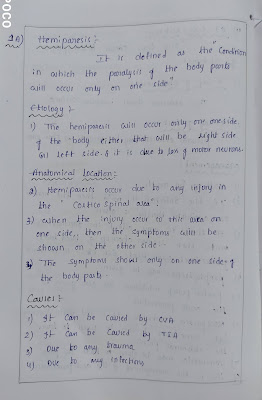 POCO
2A) Hemiparesis :-
It is defined as the "Condition
in which the paralysis of the body parts
will occur only on one side"
Etiology :-
1) The hemiparesis will occur only one side
of the body either that will be right side
(or) left side. & it is due to loss of motor neurons.
Anatomical location :-
2) Hemiparesis occur due to any injury in
the "Cortico spinal area".
3) when the injury occur to this area on
one side, then the symptoms will be
shown on the other side.
The symptoms shows only on one side of
the body parts.
Causes :-
1) It can be caused by CVA
2) It can be caused by TIA
3) Due to any trauma
4) Due to any infections